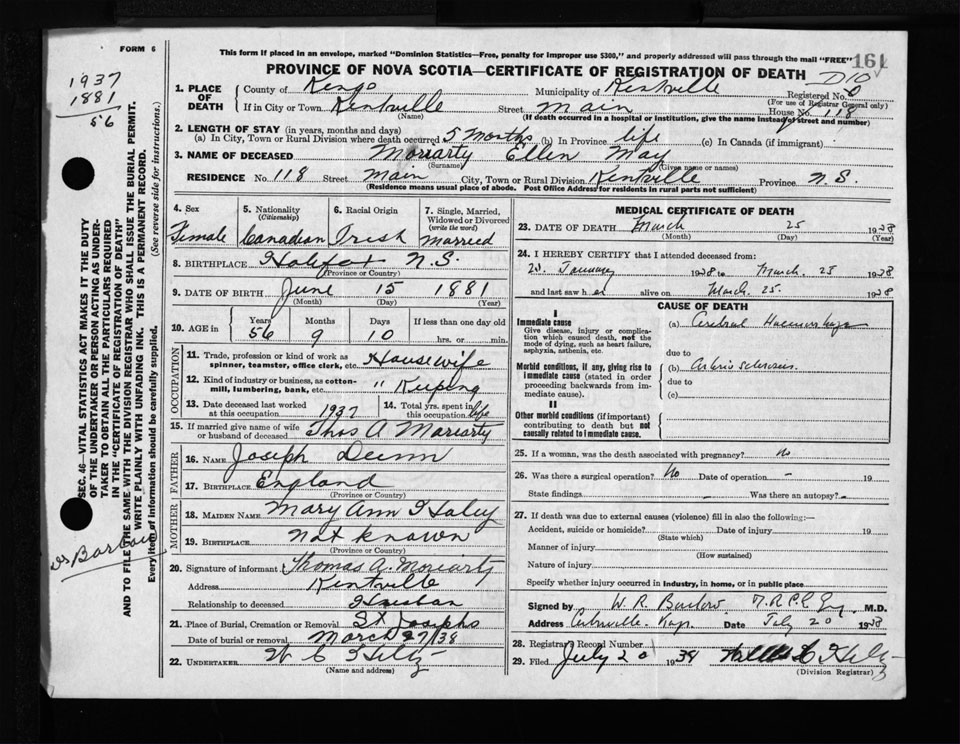 FORM 6
This form if placed in an envelope, marked "Dominion Statistics—Free, penalty for improper use $300," and properly addressed will pass through the mail "FREE"
161
PROVINCE OF NOVA SCOTIA—CERTIFICATE OF REGISTRATION OF DEATH
1937
1881
56
1. PLACE OF DEATH
County of Kings Municipality of Kentville Registered No.
(For use of Registrar General only)
If in City or Town Kentville Street Main House No. 118
(Name) (If death occurred in a hospital or institution, give the name instead of street and number)
2. LENGTH OF STAY (in years, months and days)
(a) In City, Town or Rural Division where death occurred 5 months (b) In Province life (c) In Canada (if immigrant)
3. NAME OF DECEASED Moriarty Ellen May
(Surname) (Given name or names)
RESIDENCE No. 118 Street Main City, Town or Rural Division Kentville Province N.S.
(Residence means usual place of abode. Post Office Address for residents in rural parts not sufficient)
4. Sex 5. Nationality (Citizenship) 6. Racial Origin 7. Single, Married, Widowed or Divorced (write the word)
Female Canadian Irish Married
8. BIRTHPLACE Halifax N.S.
(Province or Country)
9. DATE OF BIRTH June 15 1881
(Month) (Day) (Year)
10. AGE in Years Months Days If less than one day old
56 9 10 hrs. or min.
OCCUPATION
11. Trade, profession or kind of work as spinner, teamster, office clerk, etc. Housewife
12. Kind of industry or business, as cotton-mill, lumbering, bank, etc. " Keeping
13. Date deceased last worked at this occupation 1937 14. Total yrs. spent in this occupation life
15. If married give name of wife or husband of deceased Thos A Moriarty
FATHER
16. NAME Joseph Dunn
17. BIRTHPLACE England
(Province or Country)
MOTHER
18. MAIDEN NAME Mary Ann Haley
19. BIRTHPLACE Not known
(Province or Country)
20. Signature of informant Thomas A. Moriarty
Address Kentville
Relationship to deceased
21. Place of Burial, Cremation or Removal St Josephs
Date of burial or removal March 27/38
22. UNDERTAKER W C Hiltz
(Name and address)
MEDICAL CERTIFICATE OF DEATH
23. DATE OF DEATH March 25 1938
(Month) (Day) (Year)
24. I HEREBY CERTIFY that I attended deceased from:
January 1938 to March. 25 1938
and last saw her alive on March. 25. 1938
CAUSE OF DEATH
I
Immediate cause
Give disease, injury or complication which caused death, not the mode of dying, such as heart failure, asphyxia, asthenia, etc.
(a) Cerebral Haemorrhage
due to
Morbid conditions, if any, giving rise to immediate cause (stated in order proceeding backwards from immediate cause).
(b) Arterio sclerosis
due to
(c)
II
Other morbid conditions (if important) contributing to death but not causally related to immediate cause.
25. If a woman, was the death associated with pregnancy? No
26. Was there a surgical operation? No Date of operation — 19
State findings Was there an autopsy? —
27. If death was due to external causes (violence) fill in also the following:—
Accident, suicide or homicide? Date of injury 19
(State which)
Manner of injury
(How sustained)
Nature of injury
Specify whether injury occurred in industry, in home, or in public place
Signed by W. R. M.D.
Address Date July 20 1938
28. Registrar's Record Number
29. Filed July 20 1938 Hiltz
(Division Registrar)
SEC. 46—VITAL STATISTICS ACT MAKES IT THE DUTY
OF THE UNDERTAKER OR PERSON ACTING AS UNDERTAKER TO OBTAIN ALL THE PARTICULARS REQUIRED
IN THE "CERTIFICATE OF REGISTRATION OF DEATH"
AND TO FILE THE SAME WITH THE DIVISION REGISTRAR WHO SHALL ISSUE THE BURIAL PERMIT.
WRITE PLAINLY WITH UNFADING INK. THIS IS A PERMANENT RECORD.
Every item of information should be carefully supplied. (See reverse side for instructions.)